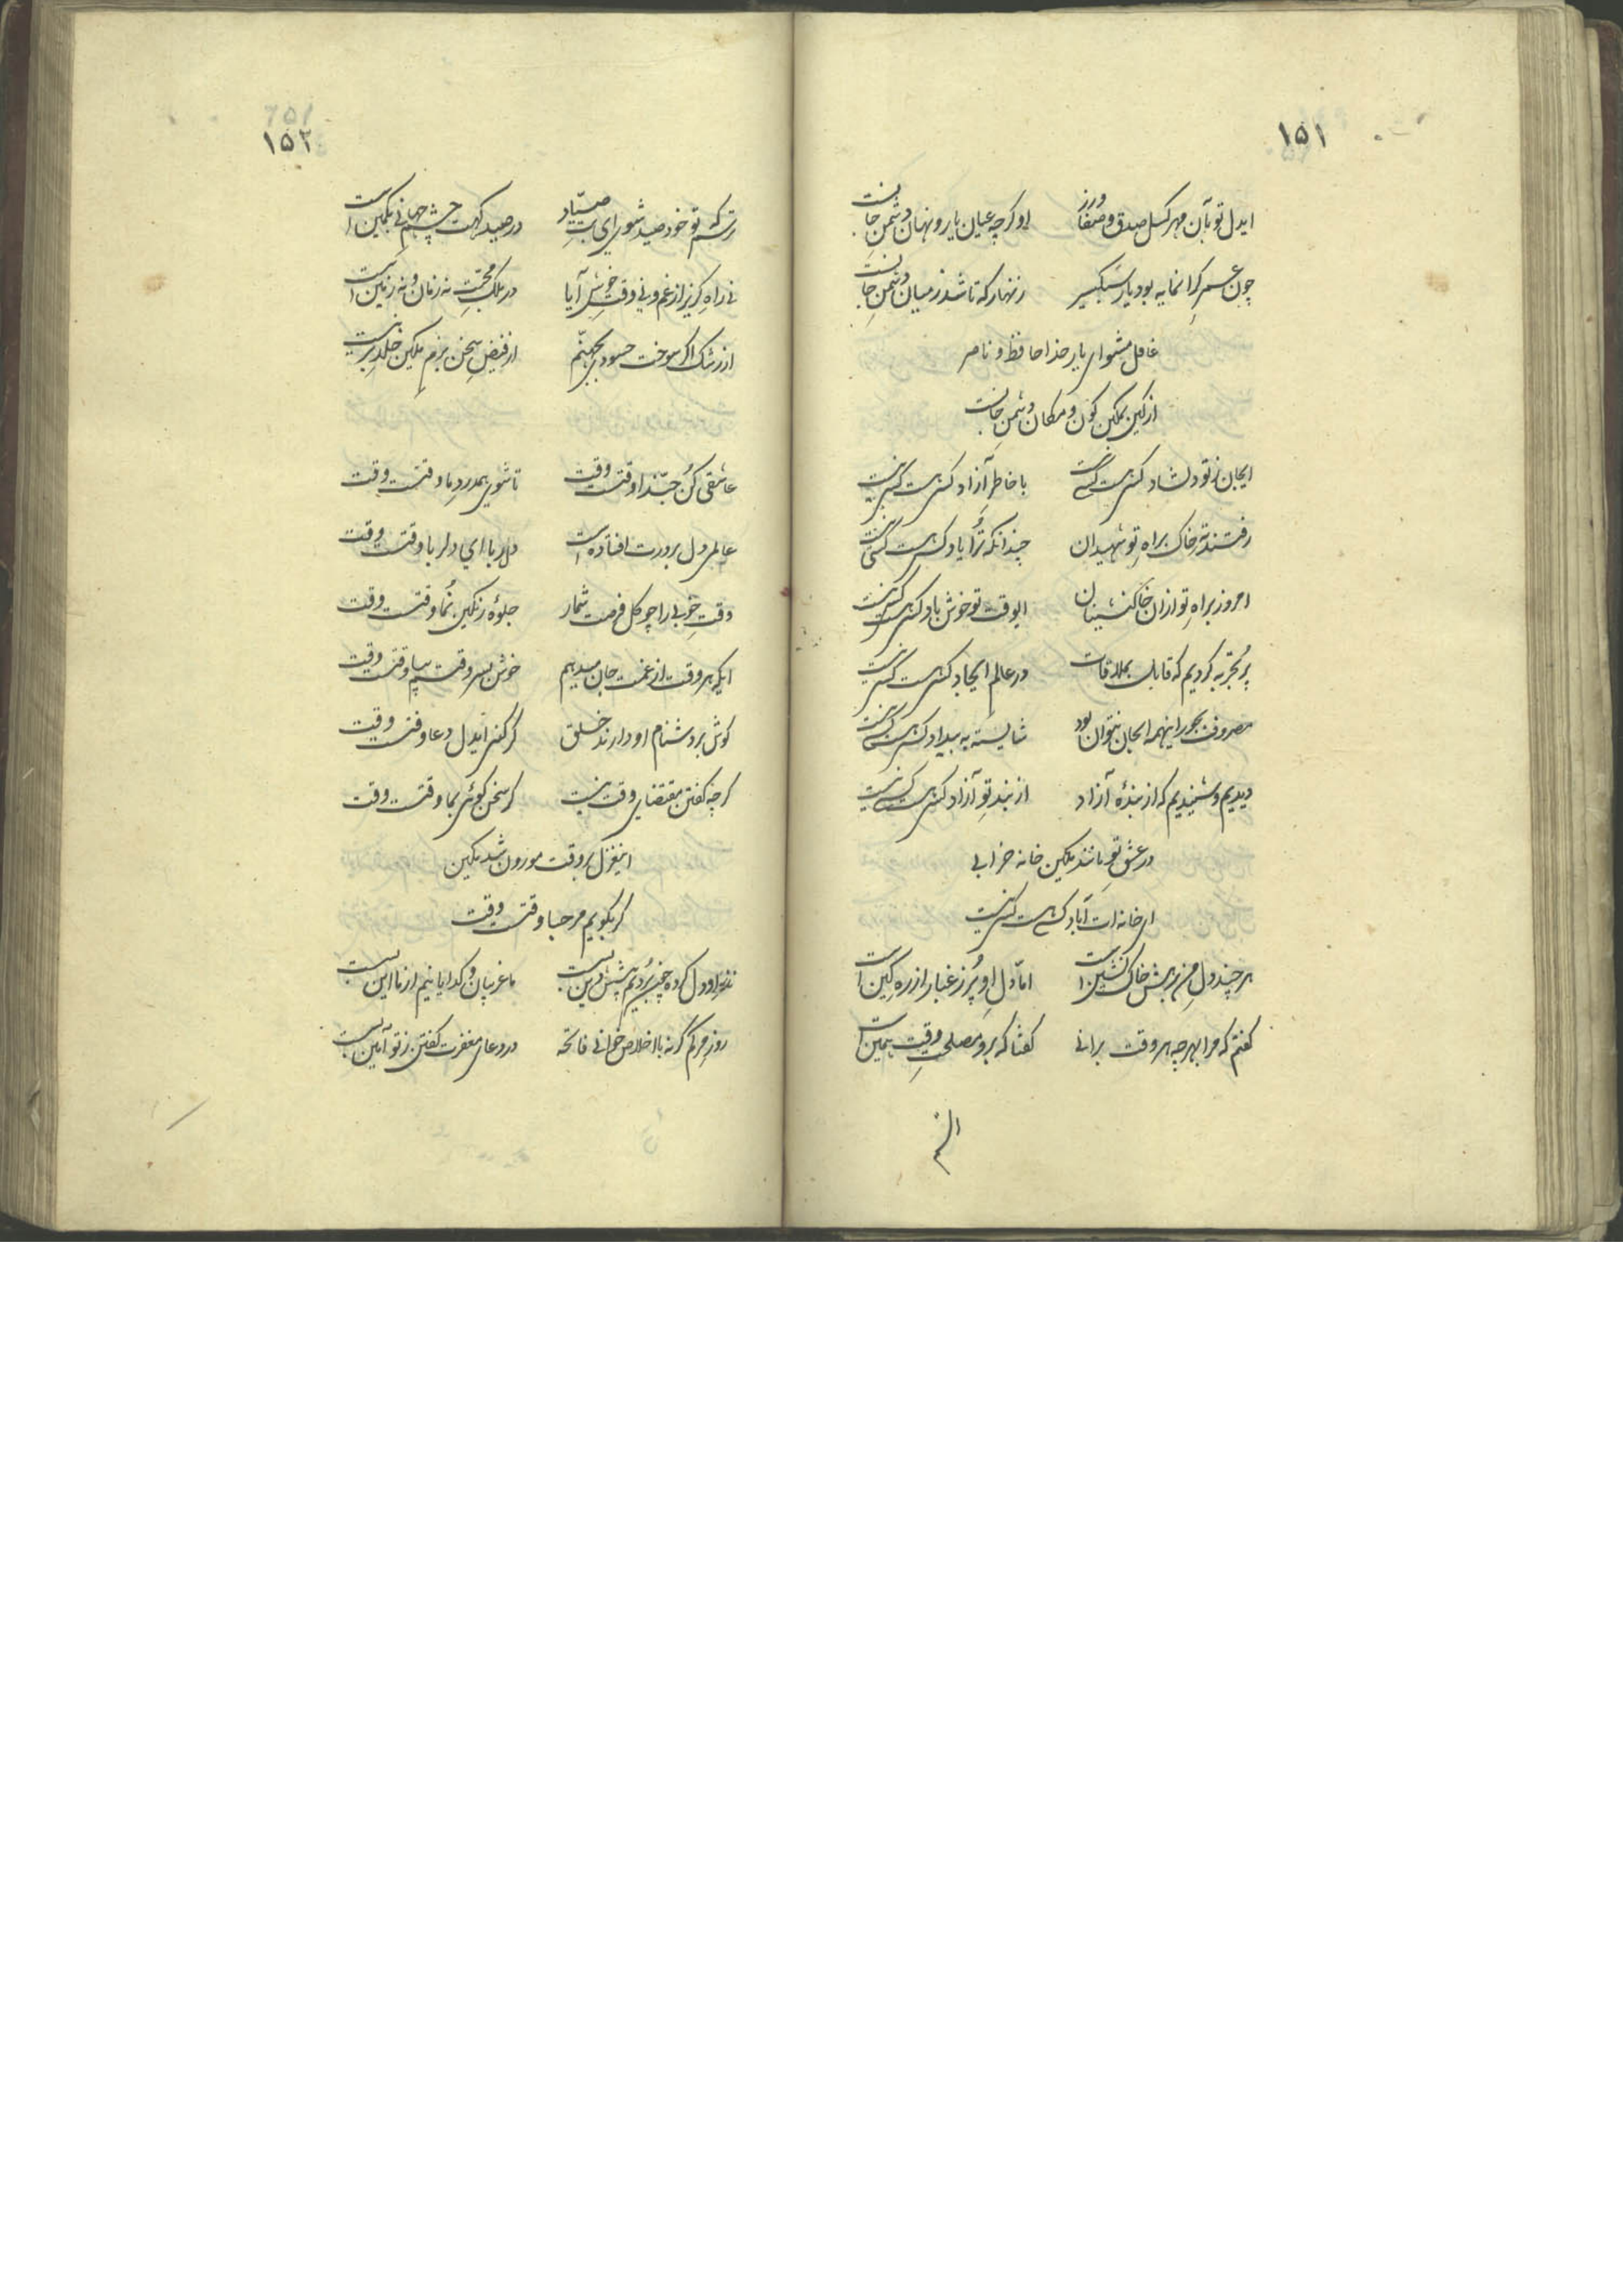 ۱۵۱
ایدل تو بآن مهر کسل صدق و صفا ورز او کرچه عیان یار و نهان دشمن جانست
چون عمر کرانمایه بود یار سبکسیر زنهار که تا شد ز میان دشمن جانست
غافل مشو ای یار خدا حافظ و ناصر
از کین بمکین کون و مکان دشمن جانست
ایجان ز تو دلشاد کسی هست کسی نیست با خاطر آزاد کسی هست کسی نیست
رفتند ته خاک براه تو شهیدان چندانکه ترا یاد کسی هست کسی نیست
امروز براه تو ازان خاکنشینان ایوقت تو خوش باد کسی هست کسی نیست
پر تجربه کردیم که قابل بملاقات در عالم ایجاد کسی هست کسی نیست
مصروف بجور اینهمه ایجان نتوان بود شایسته به بیداد کسی هست کسی نیست
دیدیم و شنیدیم که از بندهٔ آزاد از بند تو آزاد کسی هست کسی نیست
در عشق تو مانند مکین خانه خرابی
ای خانه ات آباد کسی هست کسی نیست
هر چند دل من برهش خاک نشین است اما دل او پر ز غبار از ره کین است
کفتم که مرا بهر چه هر وقت برانی کفتا که برو مصلحت وقت همین است
۱۵۲
ترسم که تو خود صید شوی ای بت صیاد در صید کهت چشم جهانی بکمین است
نی راه کریز از غم و نی وقت خوش آیا در ملک محبت نه زمان و نه زمین است
از رشک اکر سوخت حسودی بجهنم از فیض سخن بزم مکین خلد برین است
عاشقی کن حبذا وقتست وقت تا شوی همدرد ما وقتست وقت
عالمی دل بر درت افتاده است دلربا ای دلربا وقتست وقت
وقت خوبی را چو کل فرصت شمار جلوهٔ رنکین نما وقتست وقت
ایکه هر وقت از غمت جان میدهم خوش بسر وقتم بیا وقتست وقت
کوش بر دشنام او دارند خلق کر کنی ایدل دعا وقتست وقت
کرچه کفتن مقتضای وقت نیست کر سخن کوئی بما وقتست وقت
اینغزل بر وقت موزون شد مکین
کر بکویم مرحبا وقتست وقت
نذر او دل کرده چیزی بردیم پیشش دین بست ما غریبان و کدایانیم از ما این بست
روز مرکم کر نه با اخلاص خوانی فاتحه در دعای مغفرت کفتن ز تو آمین بست